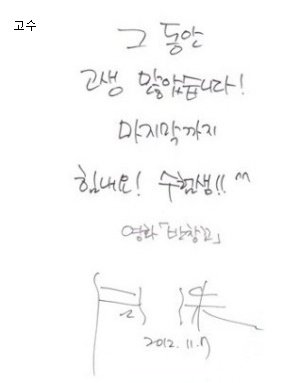 고수
그 동안
고생 많았습니다!
마지막까지
힘내요! 수험생!! ^^
영화「반창고」
2012. 11. 7